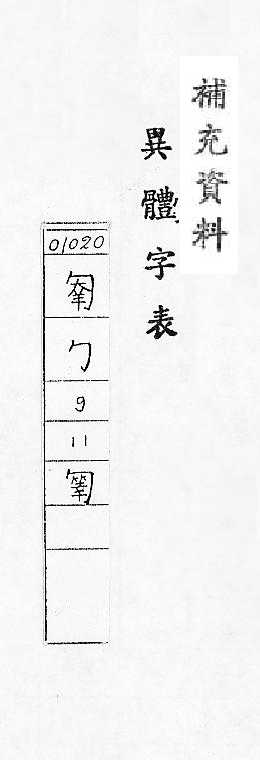 補充資料
異體字表
01020
勹
9
11